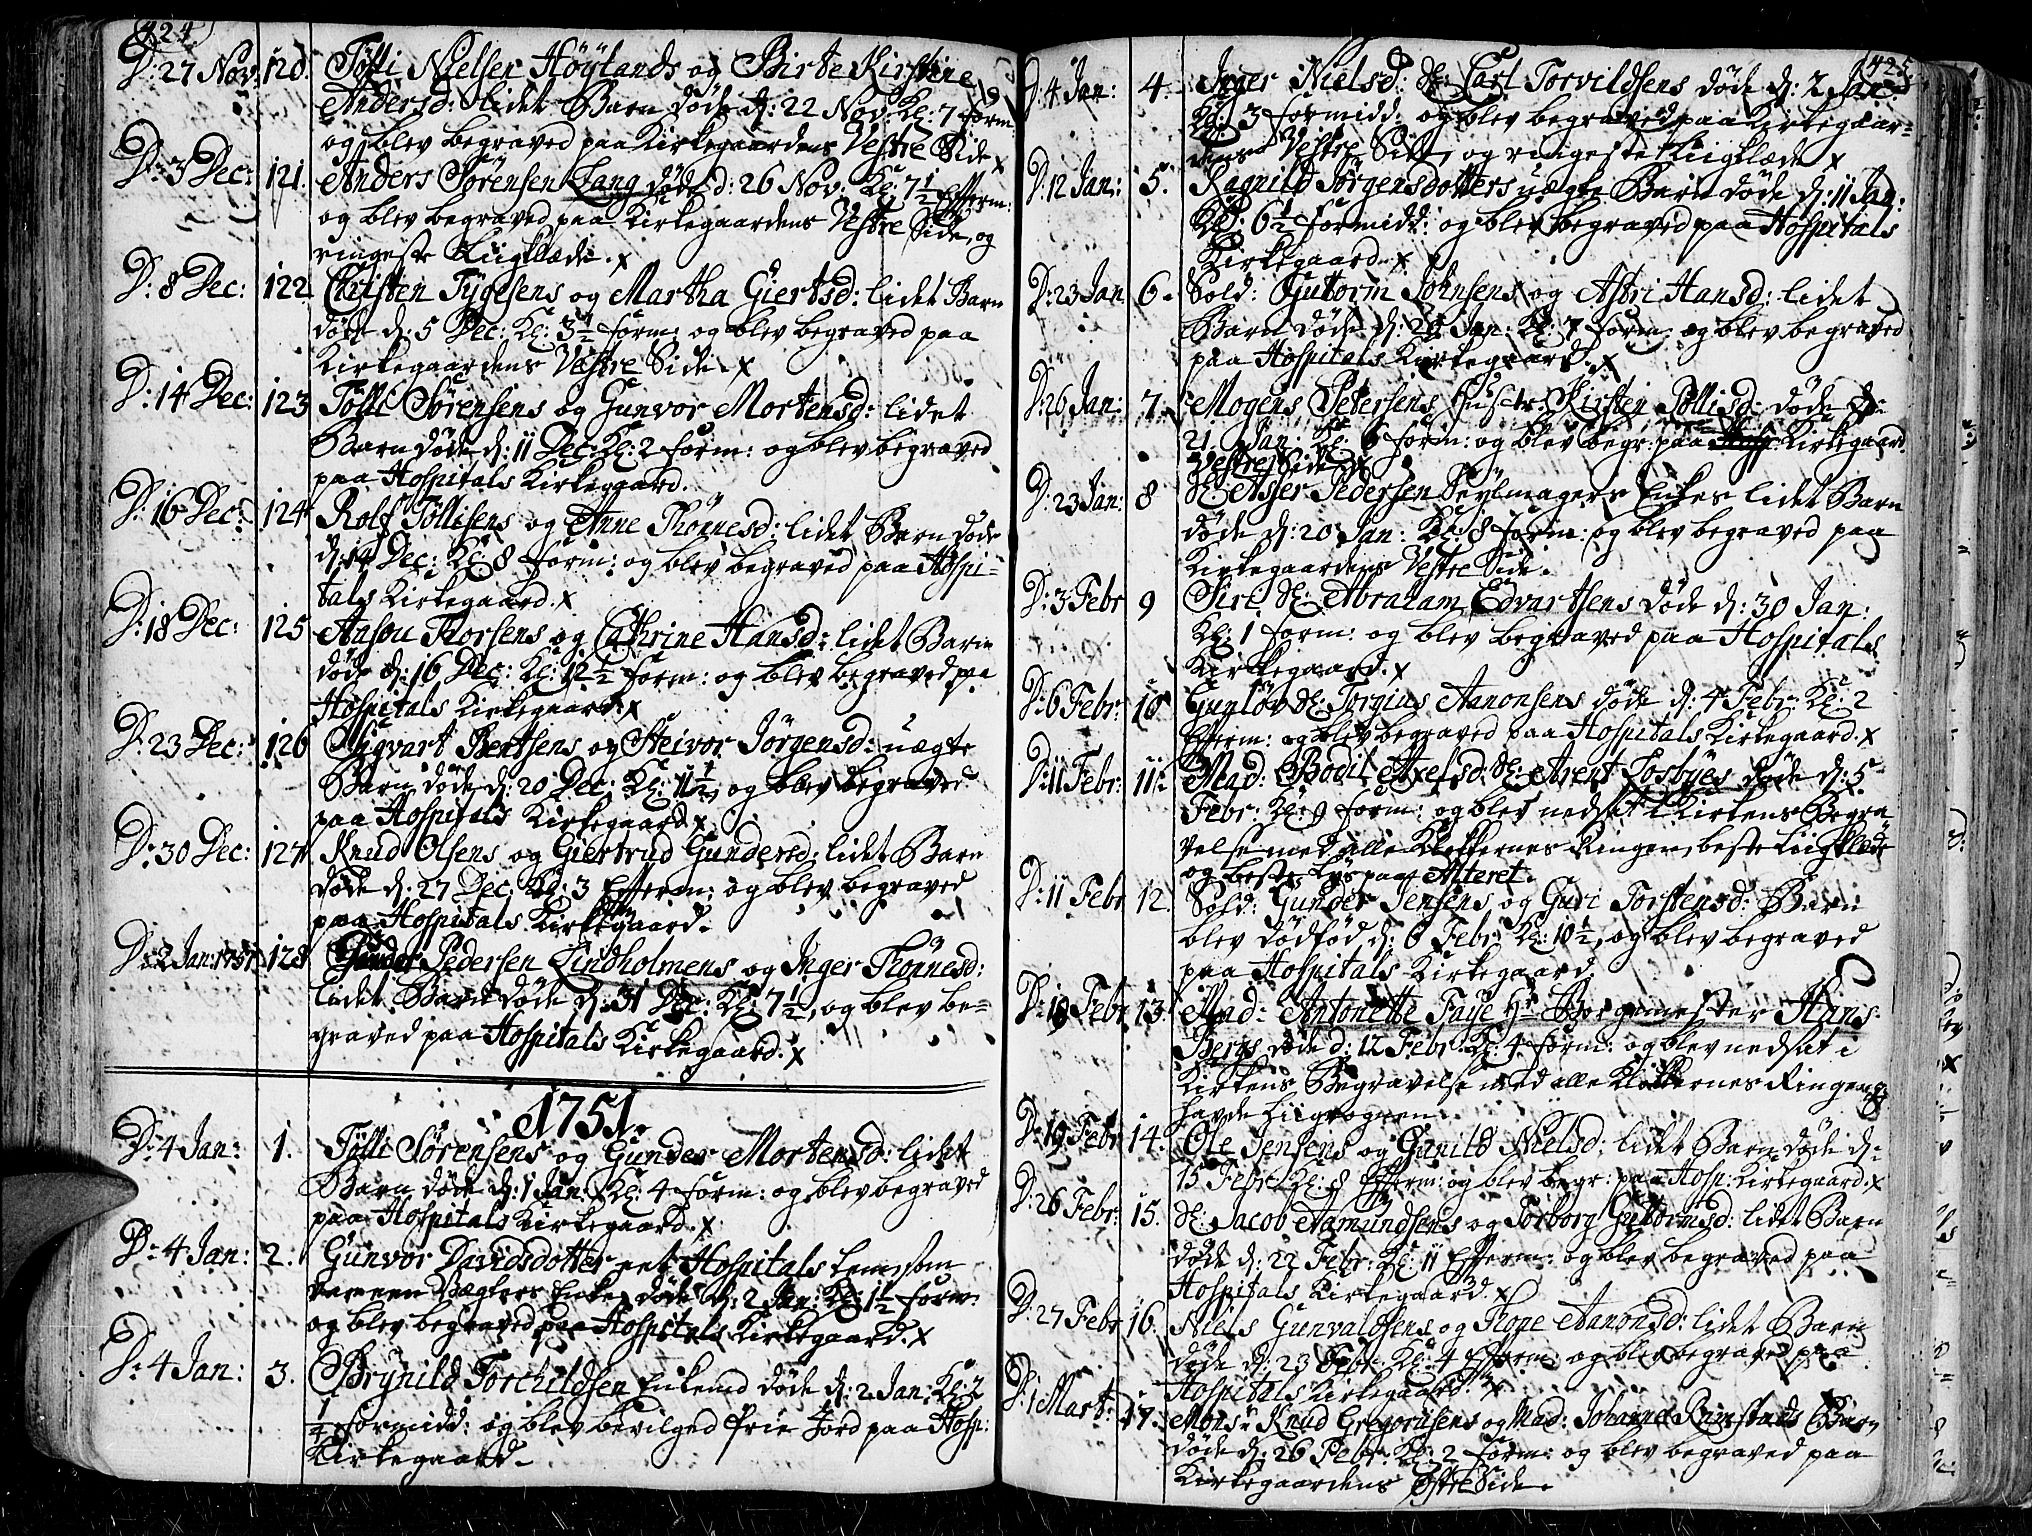 424
D: 27 Nov: 120. Tølli Nielsen Höylands og Birte Kirstine
Andersd: lidet Barn døde d: 22 Nov: Kl: 7 form:
og blev begraved paa Kirkegaardens Vestre Side x
D: 3 Dec: 121. Anders Sörensen Lang døde d: 26 Nov: Kl: 7 1/2 Efterm:
og blev begraved paa Kirkegaardens Vestre Side, og
ringeste Liigklæde. x
D: 8 Dec: 122 Christen Tygesens og Martha Giertsd: lidet Barn
døde d: 5 Dec: Kl: 3 1/2 form: og blev begraved paa
Kirkegaardens Vestre Side. x
D: 14 Dec: 123 Tölli Sörensens og Gunvor Mortensd: lidet
Barn døde d: 11 Dec: Kl: 2 form: og blev begraved
paa Hospitals Kirkegaard.
D: 16 Dec: 124 Rolf Töllisens og Anne Thönnesd: lidet Barn døde
d: 14 Dec: Kl: 8 form: og blev begraved paa Hospi-
tals Kirkegaard. x
D: 18 Dec: 125 Ansou Thorsens og Cathrine Hansd: lidet Barn
døde d: 16 Dec: Kl: 12 1/2 form: og blev begraved paa
Hospitals Kirkegaard. x
D: 23 Dec: 126 Sigvart Bentsens og Steivor Jörgensd: uægte
Barn døde d: 20 Dec: Kl: 11 1/2, og blev begraved
paa Hospitals Kirkegaard x
D: 30 Dec: 127 Knud Olsens og Giertrud Gundersd: lidet Barn
døde d: 27 Dec: Kl: 3 Efterm: og blev begraved
paa Hospitals Kirkegaard.
D: 2 Jan: 1751 128 Gunder Pedersen Lindholmens og Inger Thönnesd:
lidet Barn døde d: 31 Dec: Kl: 7 1/2, og blev be-
graved paa Hospitals Kirkegaard. x
1751.
D: 4 Jan: 1. Tölli Sörensens og Gunder Mortensd: lidet
Barn døde d: 1 Jan: Kl: 4 form: og blev begraved
paa Hospitals Kirkegaard. x
D: 4 Jan: 2. Gunvor Davidsdotter et Hospitals Lem som
var een Vægters Enke, døde d: 2 Jan: Kl: 1 1/2 form:
og blev begraved paa Hospitals Kirkegaard. x
D: 4 Jan: 3. Brynild Torchildsen Enkemd døde d: 2 Jan: Kl: 2
1/4 formidd: og blev bevilged frie Jord paa Hosp:
Kirkegaard.
425
D: 4 Jan: 4. Inger Nielsd: Sl: Carl Torvildsens døde d: 2 Jan:
Kl: 3 formidd: og blev begraved paa Kirkegaar-
dens Vestre Side, og ringeste Liigklæde x
D: 12 Jan: 5. Ragnild Jörgensdotters uægte Barn døde d: 11 Jan:
Kl: 6 1/2 formidd: og blev begraved paa Hospitals
Kirkegaard. x
D: 23 Jan 6. Sold: Gutorm Johnsens og Astri Hansd: lidet
Barn døde d: 20 Jan: Kl: 7 form: og blev begraved
paa Hospitals Kirkegaard. x
D: 26 Jan: 7. Mogens Petersens Hustr: Kirsten Töllisd: døde d:
21 Jan: Kl: 6 form: og blev begr: paa Kirkegaard
Vestre Side x
D: 23 Jan: 8 Sl: Asser Pedersen Seylmagers Enkes lidet Barn
døde d: 20 Jan: Kl: 8 form: og blev begraved paa
Kirkegaardens Vestre Side.
D: 3 Febr 9 Siri Sl: Abraham Edvartsens døde d: 30 Jan:
Kl: 1 form: og blev begraved paa Hospitals
Kirkegaard. x
D: 6 Febr: 10 Gunlöv Sl: Torgius Aanonsens døde d: 4 Febr: Kl: 2
Efterm: og blev begraved paa Hospitals Kirkegaard. x
D: 11 Febr: 11. Mad: Bodil Axelsd: Sl: Arent Losbyes døde d: 5
Febr: Kl: 9 form: og blev nedsat i Kirkens Begra-
velse med alle Klokkernes Ringen, beste Liigklæde
og beste Lys paa Alteret.
D: 11 Febr 12. Sold: Gunder Jensens og Guri Torstensd: Barn
blev dödföd d: 6 Febr: Kl: 10 1/2, og blev begraved
paa Hospitals Kirkegaard.
D: 19 Febr 13. Mad: Antonette Faye Hr Borgemester Hans
Bergs døde d: 12 Febr: Kl: 4 form: og blev nedsat i
Kirkens Begravelse med alle Klokkernes Ringen,
havde Liigvognen.
D: 19 Febr 14. Ole Jensens og Gunild Nielsd: lidet Barn døde d:
15 Febr: Kl: 8 Efterm: og blev begr: paa Hosp: Kirkegaard. x
D: 26 Febr: 15. Sl: Jacob Aamundsens og Torborg Guttormsd: lidet Barn
døde d: 22 Febr: Kl: 11 Efterm: og blev begraved paa
Hospitals Kirkegaard. x
D: 27 Febr 16. Niels Gunvaldsens og Thone Aanonsd: lidet Barn
døde d: 23 Febr: Kl: 4 Efterm: og blev begraved paa
Hospitals Kirkegaard. x
D: 1 Mart: 17. Mons: Knud Gregoriisens og Mad: Johanna Barn
døde d: 26 Febr: Kl: 2 form: og blev begraved paa
Kirkegaardens Östre Side.